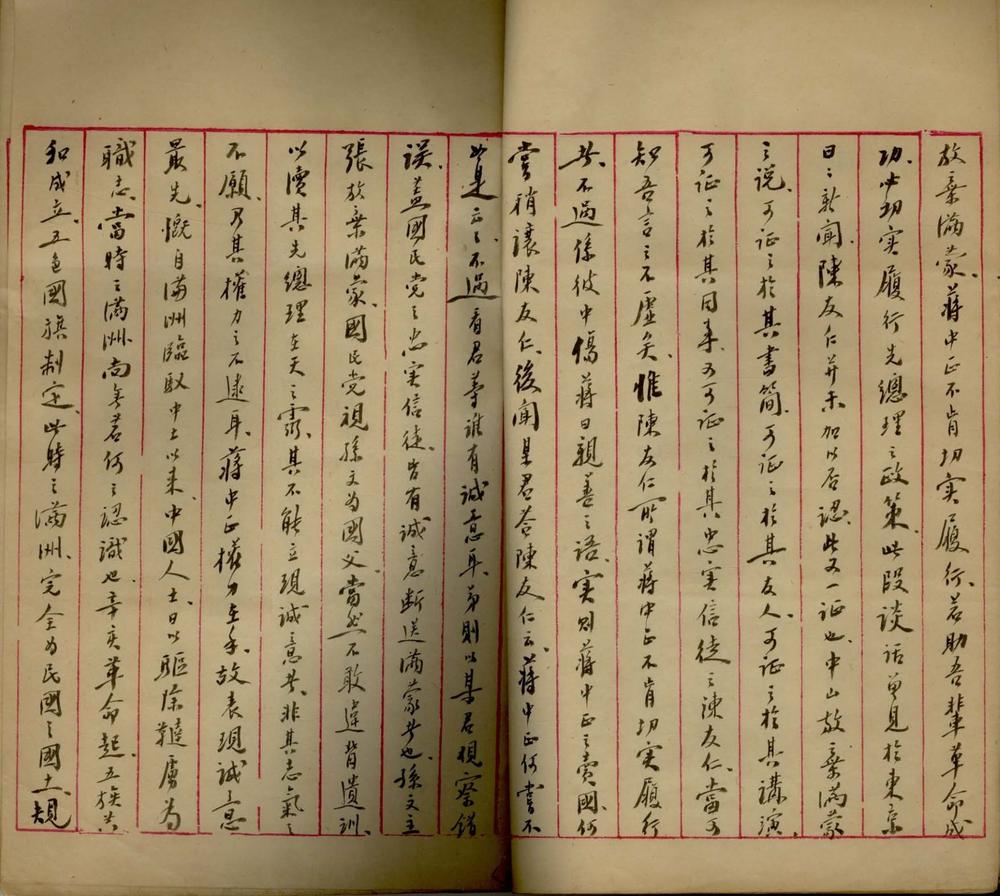 放棄滿蒙、蔣中正不肯切实履行、若助吾輩革命成
功、必切实履行先總理之政策、此段談話曾見於東京
日日新聞、陳友仁并未加以否認、此又一証也、中山放棄滿蒙
之说、可证之於其書简、可证之於其友人、可证之於其講演、
可证之於其同事、又可证之於其忠实信徒之陳友仁、當可
知吾言之不虚矣、惟陳友仁所谓蔣中正不肯切实履行
者、不過係彼中傷蔣日親善之語、实则蔣中正之賣國、何
嘗稍讓陳友仁、後闻某君答陳友仁云、蔣中正何嘗不
如是云云、不過看君等谁有誠意耳、弟則以某君視察錯
误、蓋國民党之忠实信徒、皆有诚意断送滿蒙者也、孫文主
張放棄滿蒙、國民党視孫文为國父、當然不敢違背遺訓、
以瀆其先總理在天之霊、其不能立現诚意者、非其志氣之
不願、乃其權力之不逮耳、蔣中正權力在手、故表現诚意
最先、慨自滿洲臨馭中土以来、中國人士、日以驅除韃虜为
職志、當時之滿洲、尚無若何之認識也、辛亥革命起、五族共
和成立、五色國旗制定、此時之滿洲、完全为民國之國土、規